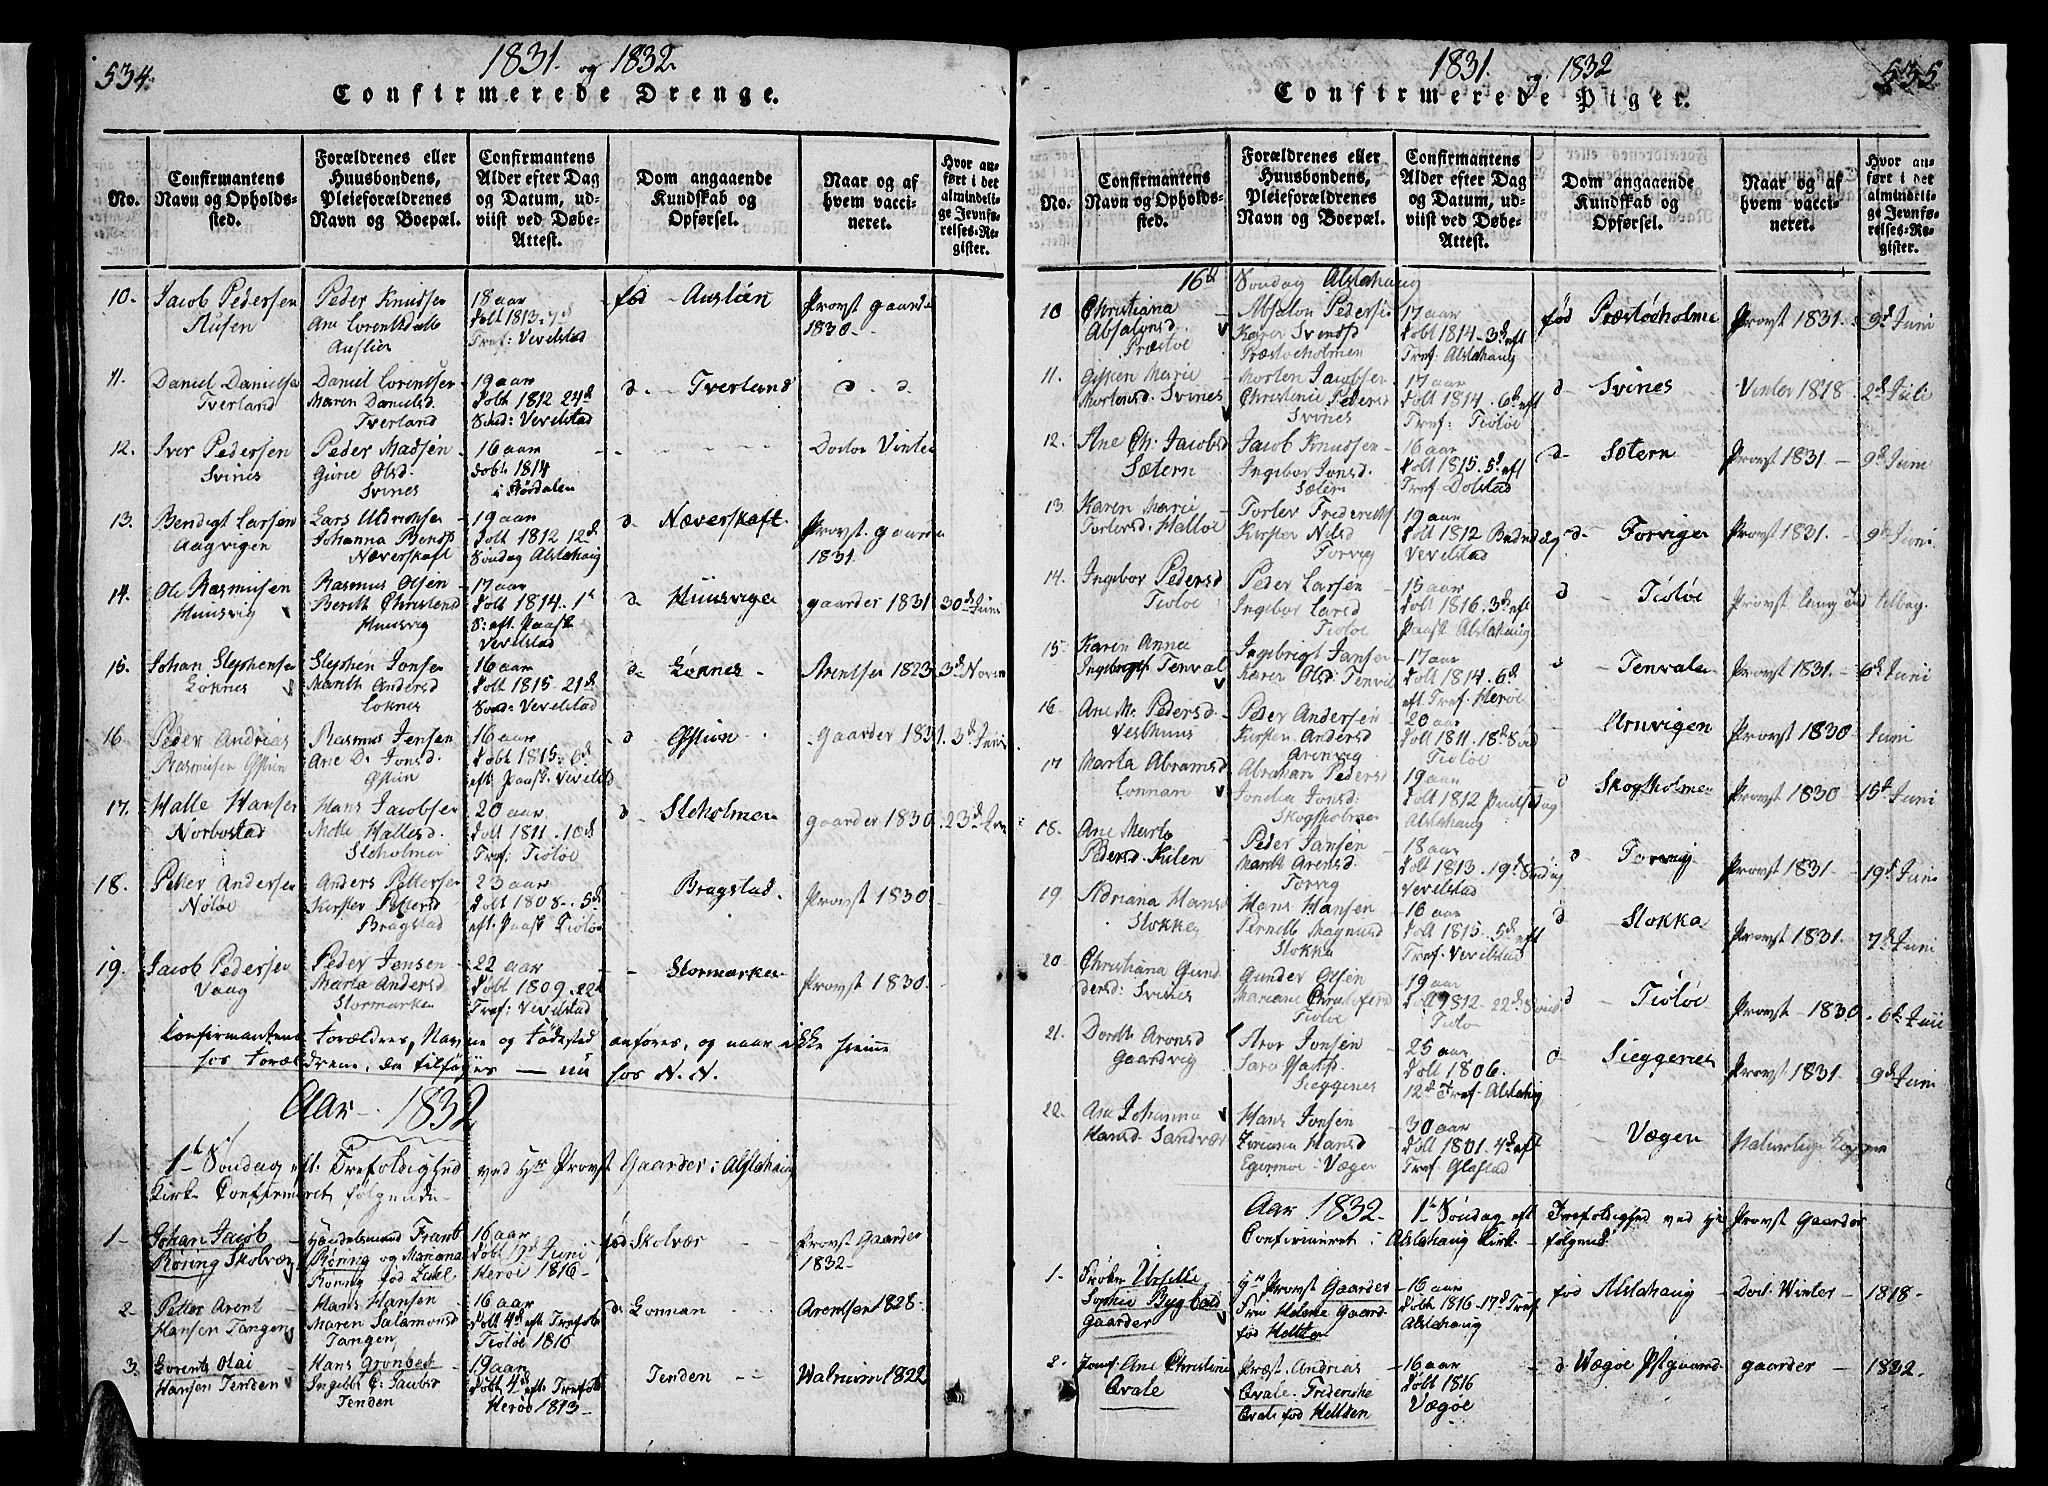 534.
1831. og 1832.
Confirmerede Drenge.
No.
Confirmantens
Navn og Opholds-
sted.
Forældrenes eller
Huusbondens,
Pleieforældrenes
Navn og Boepæl.
Confirmantens
Alder efter Dag
og Datum, ud-
viist ved Døbe-
Attest.
Dom angaaende
Kundskab og
Opførsel.
Naar og af
hvem vacci-
neret.
Hvor an-
ført i det
almindeli-
ge Jevnfø-
relses-Re-
gister.
10. Jacob Pedersen
Peder Knudsen
Ane Lorentsd
Auslien
18 aar
Døbt 1813. 7d
Tref: Vevelstad
fød - Auslien
Provst Gaarde
1830 -
11. Daniel Danielse
Tverland
Daniel Lorentser
Maren Danielsd.
Tverland
19 aar
Døbt 1812 24d
Sønd: Vevelstad
d. - Tverland
d. d.
12. Iver Pedersen
Svines
Peder Madsen
Gurie Olsd
Svines
16 aar
Døbt 1814
i Størdalen
Doctor Vinter
13. Bendigt Larsen
Aagvigen
Lars Uldrichsen
Johanna Bendsd
Næverskaft
19 aar
Døbt 1812 12d
Søndag Alstahaug
d. Næverskaft.
Provst. Gaarde
1831.
14. Ole Rasmusen
Huusvig
Rasmus Olsen
Bereth Christensd
Huusvig
17 aar
Døbt 1814. 1d
S: eft. Paask
Vevelstad
d. Huusvige
gaarder 1831
30d Juni
15. Johan Stephensen
Loknes
Stephen Jonsen
Mareth Andersd
Loknes
16 aar
Døbt 1815 - 21d
Sønd: Vevelstad
d. Loknes -
Arentsen 1823
3d Novem
16 Peder Andrias
Rasmusen
Rasmus Jensen
Ane D. Jonsd.
16 aar
Døbt 1815. 6d
eft Paask. Vevelstad
d
gaarder 1831.
3d Juni
17. Halle Hansen
Norbostad
Hans Jacobsen
Mette Hallesd.
Sleholmen
20 aar
Døbt 1811. 10d
Tref: Tiøtøe
d. Sleholmen
gaarder 1830.
23d Juni
18. Petter Andersen
Anders Pettersen
Kirsten Petersd
Bragstad
23 aar
Døbt 1808 - 5d
eft. Paask Tiøtøe
- Bragstad.
Provst 1830
19. Jacob Pedersen
Vaag
Peder Jensen
Marta Andersd
Stormarken
22 aar
Døbt 1809. 22d
Tref: Vevelstad
- Stormarken
Provst 1830.
Confirmantens Forældres, Navne og Fødested anføres, og naar ikke hiemme
hos Forældrene, da tilføyes — nu hos N. N.
Aar - 1832
1te Søndag eft. Trefoldighed ved Hr Provst Gaarder i Alstahaug
Kirke Confirmeret følgende -
1 - Johan Jacob
Røring Skolvær
Handelsmand Frants
Røring og Mariana
Røring fød Zahl
16 aar
Døbt 17d Juni
Herøe 1816 -
fød Skolvær
Provst Gaarder
1832 -
2 - Petter Arent
Hansen Tangen
Hans Hansen
Maren Salamonsd
Tangen
16 aar
Døbt 4d eft Trefold
Tiøtøe 1816
d. Lonnan
Arentsen 1828.
3. Lorents Olai
Hansen Tenden
Hans Grønbech
Ingeb. C. Jacobsd
Tenden
19 aar
Døbt 4d eft Trefold
Herøe 1813 -
Tenden
Walnum 1822
535.
1831. og 1832
Confirmerede Piger.
No.
Confirmantens
Navn og Opholds-
sted.
Forældrenes eller
Huusbondens,
Pleieforældrenes
Navn og Boepæl.
Confirmantens
Alder efter Dag
og Datum, ud-
viist ved Døbe-
Attest.
Dom angaaende
Kundskab og
Opførsel.
Naar og af
hvem vacci-
neret.
Hvor an-
ført i det
almindeli-
ge Jevnfø-
relses-Re-
gister.
16d Søndag Alstahaug
10 Christiana
Absalonsd.
Præstøe
Absalon Pedersen
Karen Svendsd
Præstøeholmen
17 aar
Døbt 1814 - 3d eft
Tref. Alstahaug
fød Præstøeholmen
Provst 1831.
9d Juni
11. Gisken Marie
Mortensd. Svines
Morten Jacobsen
Christine Pedersd
Svines
17 aar
Døbt 1814. 6d eft
Tref: Tiøtøe
d - Svines
Vinter 1818
2d Juli
12. Ane Ch: Jacobsd
Sætern
Jacob Knudsen
Ingebor Jonsd.
Sætern
16 aar
Døbt 1815. 5d eft
Tref Dolstad
d - Sætern
Provst 1831 -
9d Juni
13. Karen Marie
Torlersd. Halløe
Torler Fridericksen
Kirsten Nilsd
Forvig
19 aar
Døbt 1812 Bededag
Vevelstad
d - Forvigen
Provst 1831. -
9d Juni
14. Ingebor Pedersd
Tiøtøe
Peder Larsen
Ingebor Larsd
Tiøtøe
15 aar
Døbt 1816. 3d eft
Paask Alstahaug
d - Tiøtøe
Provst lang Tid tilbag.
15. Karen Anna
Ingebrigtsd Tenval
Ingebrigt Jansen
Karen Olsd. Tenval
17 aar
Døbt 1814 6d
eft Tref. Herøe
d - Tenvalen
Provst 1831. -
6d Juni
16 Ane M. Pedersd.
Vesthuus
Peder Andersen
Kirsten Andersd
Arenvig
20 aar
Døbt 1811. 18d Sønd
Tiøtøe
- Arnvigen
Provst 1830
Juni
17 Marta Abramsd
Lonnan
Abraham Pedersen
Jonetta Jonsd:
Skogsholmen
19 aar
Døbt 1812
Alstahaug
d Skogsholmen
Provst 1830
15d Juni
18. Ane Marte
Pedersd. Kilen
Peder Jansen
Mareth Arensd.
Forvig
18 aar
Døbt 1813. 19d Søndag
Vevelstad
d - Forvig
Provst 1831 -
19d Juni
19 Adriana Hansd
Slokka
Hans Hansen
Pernelle Magnusd
Slokka
16 aar
Døbt 1815. 5d eft
Tref. Vevelstad
d - Slokka
Provst 1831.
7d Juni
20 Christiana Gund
dersd: Svines
Gunder Olsen
Mariane Christofersd
Tiøtøe
19 aar
Døbt 1812 - 22d Sønd
Tiøtøe
d - Tiøtøe
Provst - 1830.
6d Juni
21. Dorth Aronsd
Gaardvig
Aron Jonsen
Sara
Sieggenes
25 aar
Døbt 1806.
12d Tref. Alstahaug
d - Sieggenes
Provst 1831.
9d Juni
22. Ane Johanna
Hansd. Sandvær
Hans Jonsen
Ziriana Hansd
Egermoe - Væger
30 aar
Døbt 1801. 4d eft
Tref
- Vægen
Naturlige Kopper
Aar 1832 - 1te Søndag eft Trefoldighed ved Hr Provst Gaarder
Confirmeret i Alstahaug Kirke - følgende
1. Frøken Urselle
Sophie Bygbald
Gaarder
Hr Provst Gaarder
Frue Helene Gaard
fød Heltzen
16 aar
Døbt 1816 - 17d Tref
Alstahaug
fød Alstahaug
Doct. Winter
1818 -
2. Jomf. Ane Christine
Qvale
Præst. Andrias
Qvale. Friderikke
Qvale fød Heltzen
16 aar
Døbt 1816
Vægøe
d. Vægøe Pstgaard
gaarder -
1832.